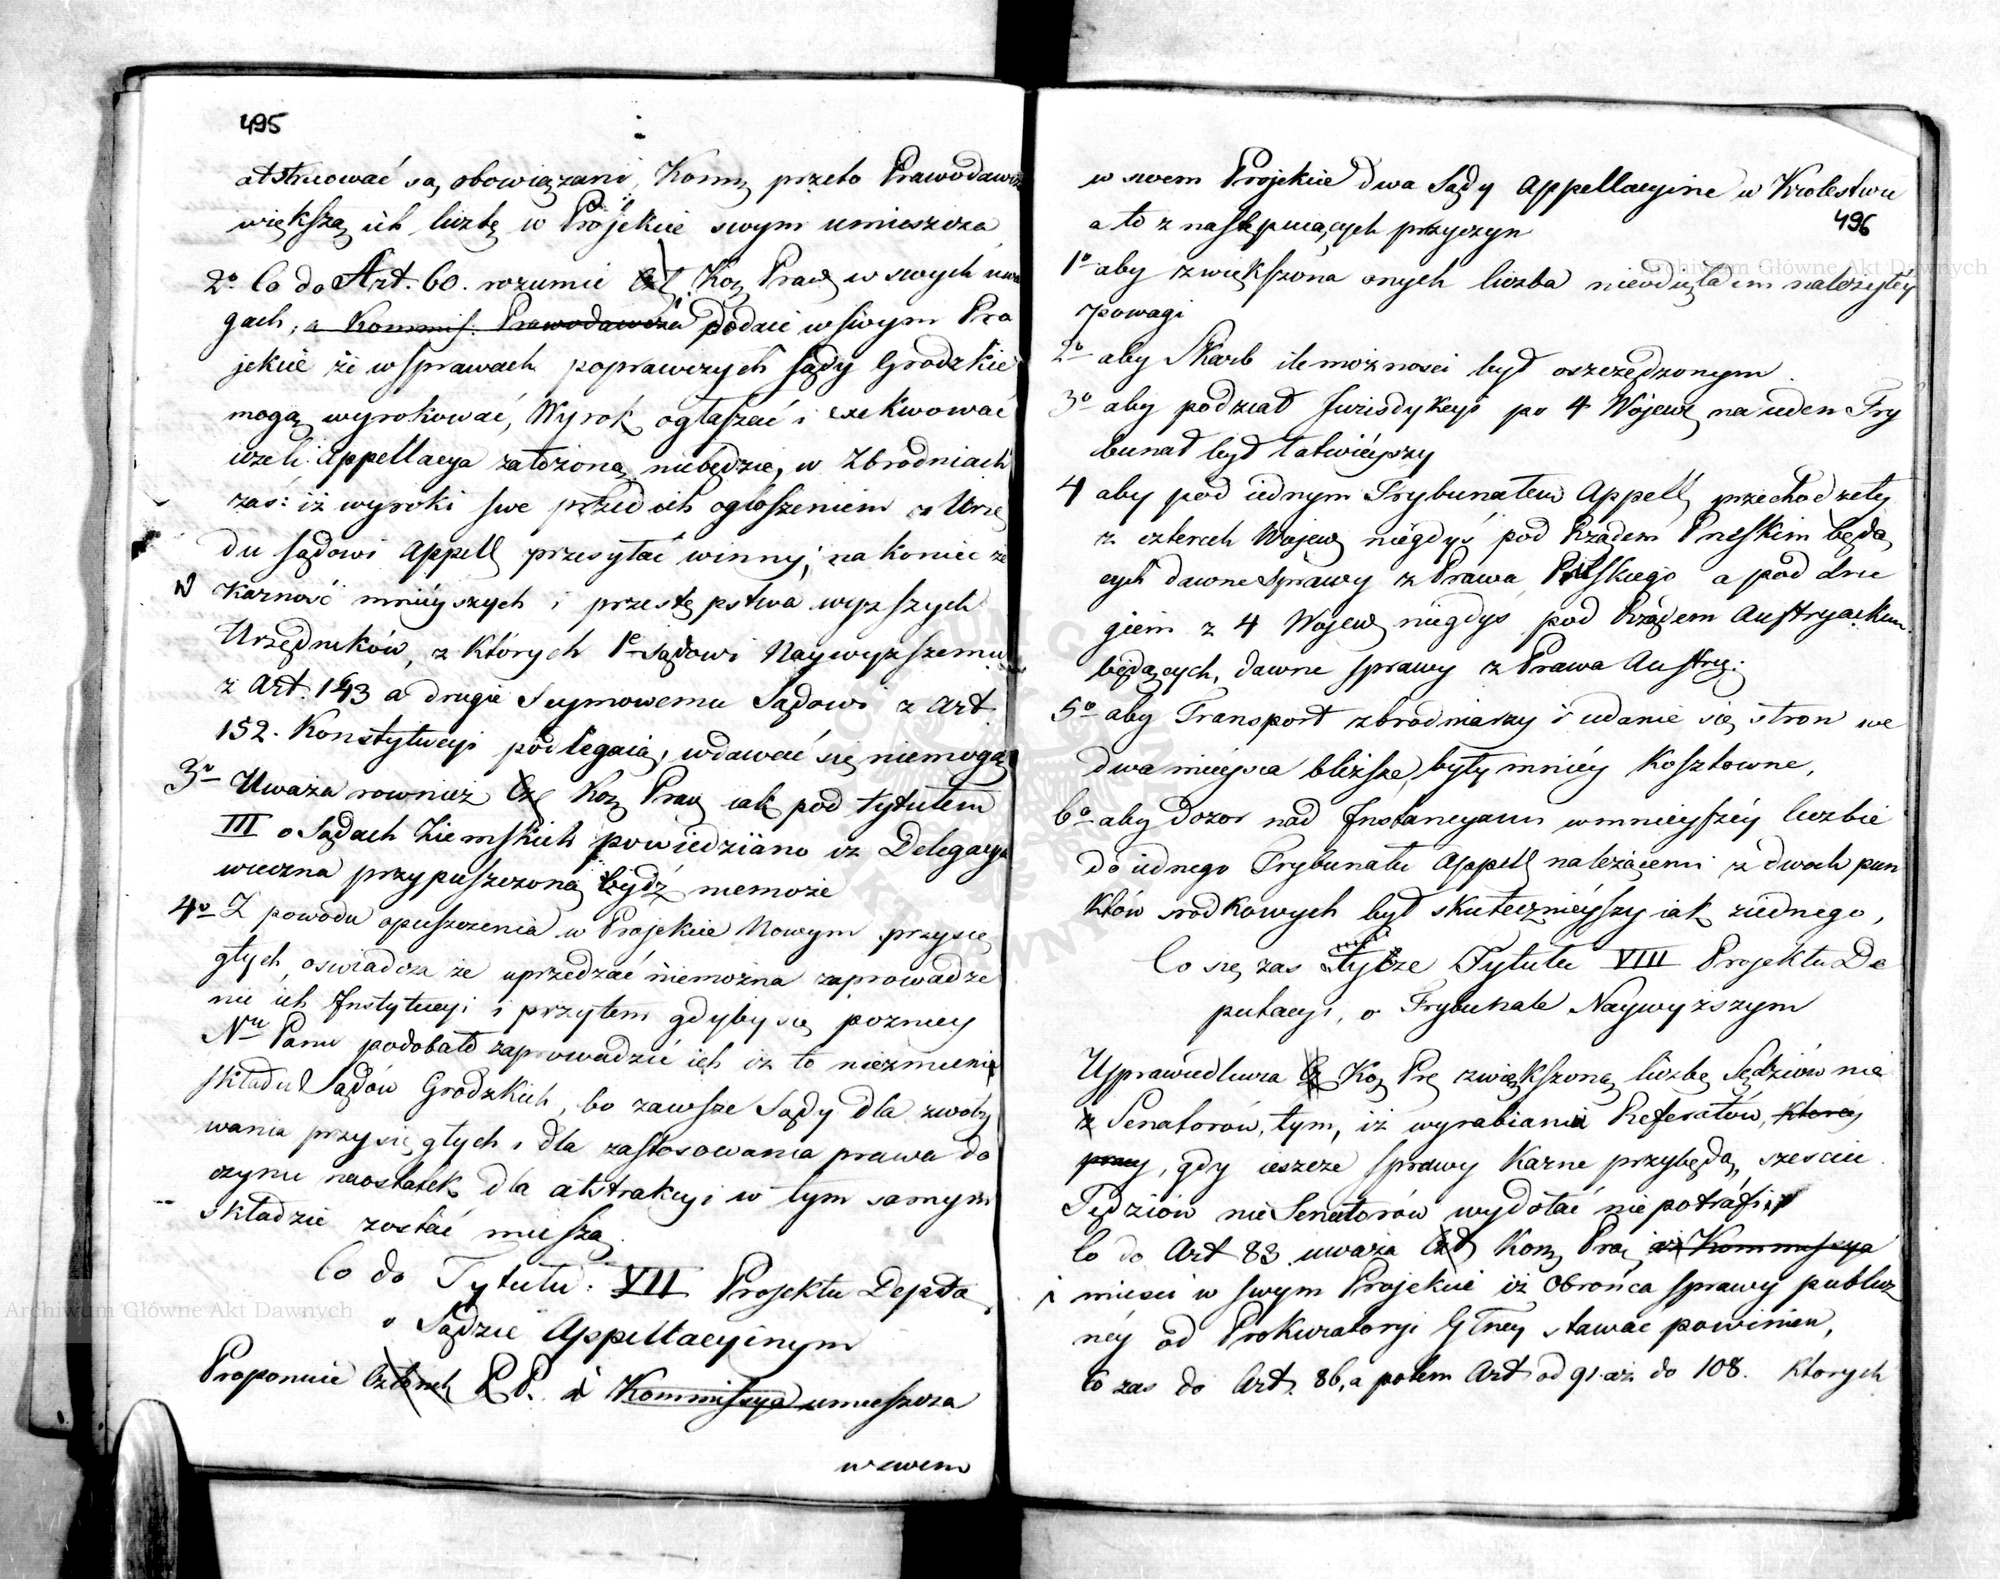 495
atstruować są obowiązani, Komm przeto Prawodawcza
większą ich liczbę w Projekcie swym umieszcza
2o Co do Art. 60. rozumie Czł Kom Praw w swych uwa
gach, a Kommis. Prawodawcza podaie w swym Pro
jekcie że w sprawach poprawczych sądy Grodzkie
mogą wyrokować, Wyrok ogłaszać i exekwować
ieżeli Appellacya założoną niebędzie, w Zbrodniach
zaś: iż wyroki swe przed ich ogłoszeniem z Urzę
du sądowi Appell przesyłać winny; na koniec że
w Karność mnieyszych i przestępstwa wyższych
Urzędników, z których 1e sądowi Naywyższemu
z Art. 143 a drugie Seymowemu Sądowi z Art
152. Konstytucyi podlegaią, wdawać się niemogą
3o Uważa rownież Czł Kom Praw iak pod tytułem
III o Sądach Ziemskich powiedziano iż Delegacya
wieczna przypuszczoną bydź niemoże
4o Z powodu opuszczenia w Projekcie Nowym przysię
głych, oświadcza że uprzedzać niemożna zaprowadze
nie ich Instytucyi i przytem gdyby się pozniey
Nu Panu podobało zaprowadzić ich iż to niezmieni
składu Sądów Grodzkich, bo zawsze Sądy dla zwoły
wania przysięgłych i dla zastosowania prawa do
czynu naostatek dla atstrakcyi w tym samym
składzie zostać muszą.
Co do Tytułu. VII Projektu Deputa
o Sądzie Appellacyinym
Proponuie Członek P. P. i Kommissya umieszcza
w swem
w swem Projekcie dwa Sądy Appellacyine w Krolestwie
496
a to z następuiących przyczyn
1o aby zwiększona onych liczba nieodięła im należytéy
powagi
2o aby Skarb ile możnosci był oszczędzonym.
3o aby podział Jurisdykcyi po 4 Wojew na ieden Try
bunał był łatwieyszy
4 aby pod iednym Trybunałem Appell przechodziły
z czterech Wojew niegdyś pod Rządem Pruskim będą
cych dawne sprawy z Prawa Pruskiego a pod dru
giem z 4 Wojew niegdys pod Rządem Austryackim
będących, dawne sprawy z Prawa Austry.
5o aby Transport zbrodniarzy i udanie się stron we
dwa mieysca bliższe, były mniéy kosztowne,
6o aby dozor nad Instancyami w mnieyszéy liczbie
do iednego Trybunału Appell należącemi z dwoch pun
któw srodkowych był skutecznieyszy iak z iednego,
Co się zas tycze Tytułu VIII Projektu De
putacyi, o Trybunale Naywyższym
Usprawiedliwia Cz Kom Pr zwiększoną liczbę Sędziów nie
z Senatorów, tym, iż wyrabiania Referatów, ktorey
pracy, gdy ieszcze sprawy Karne przybędą, szesciu
Sędziów nie Senatorów wydołać niepotrafi
Co do Art 83 uważa Czł Kom Praw iż Kommissya
i miesci w swym Projekcie iż Obrońca sprawy publicz
néy od Prokuratoryi Głney stawać powinien,
Co zas do Art. 86, a potem Art od 91. aż do 108. ktorych
Archiwum Główne Akt Dawnych
Archiwum Główne Akt Dawnych